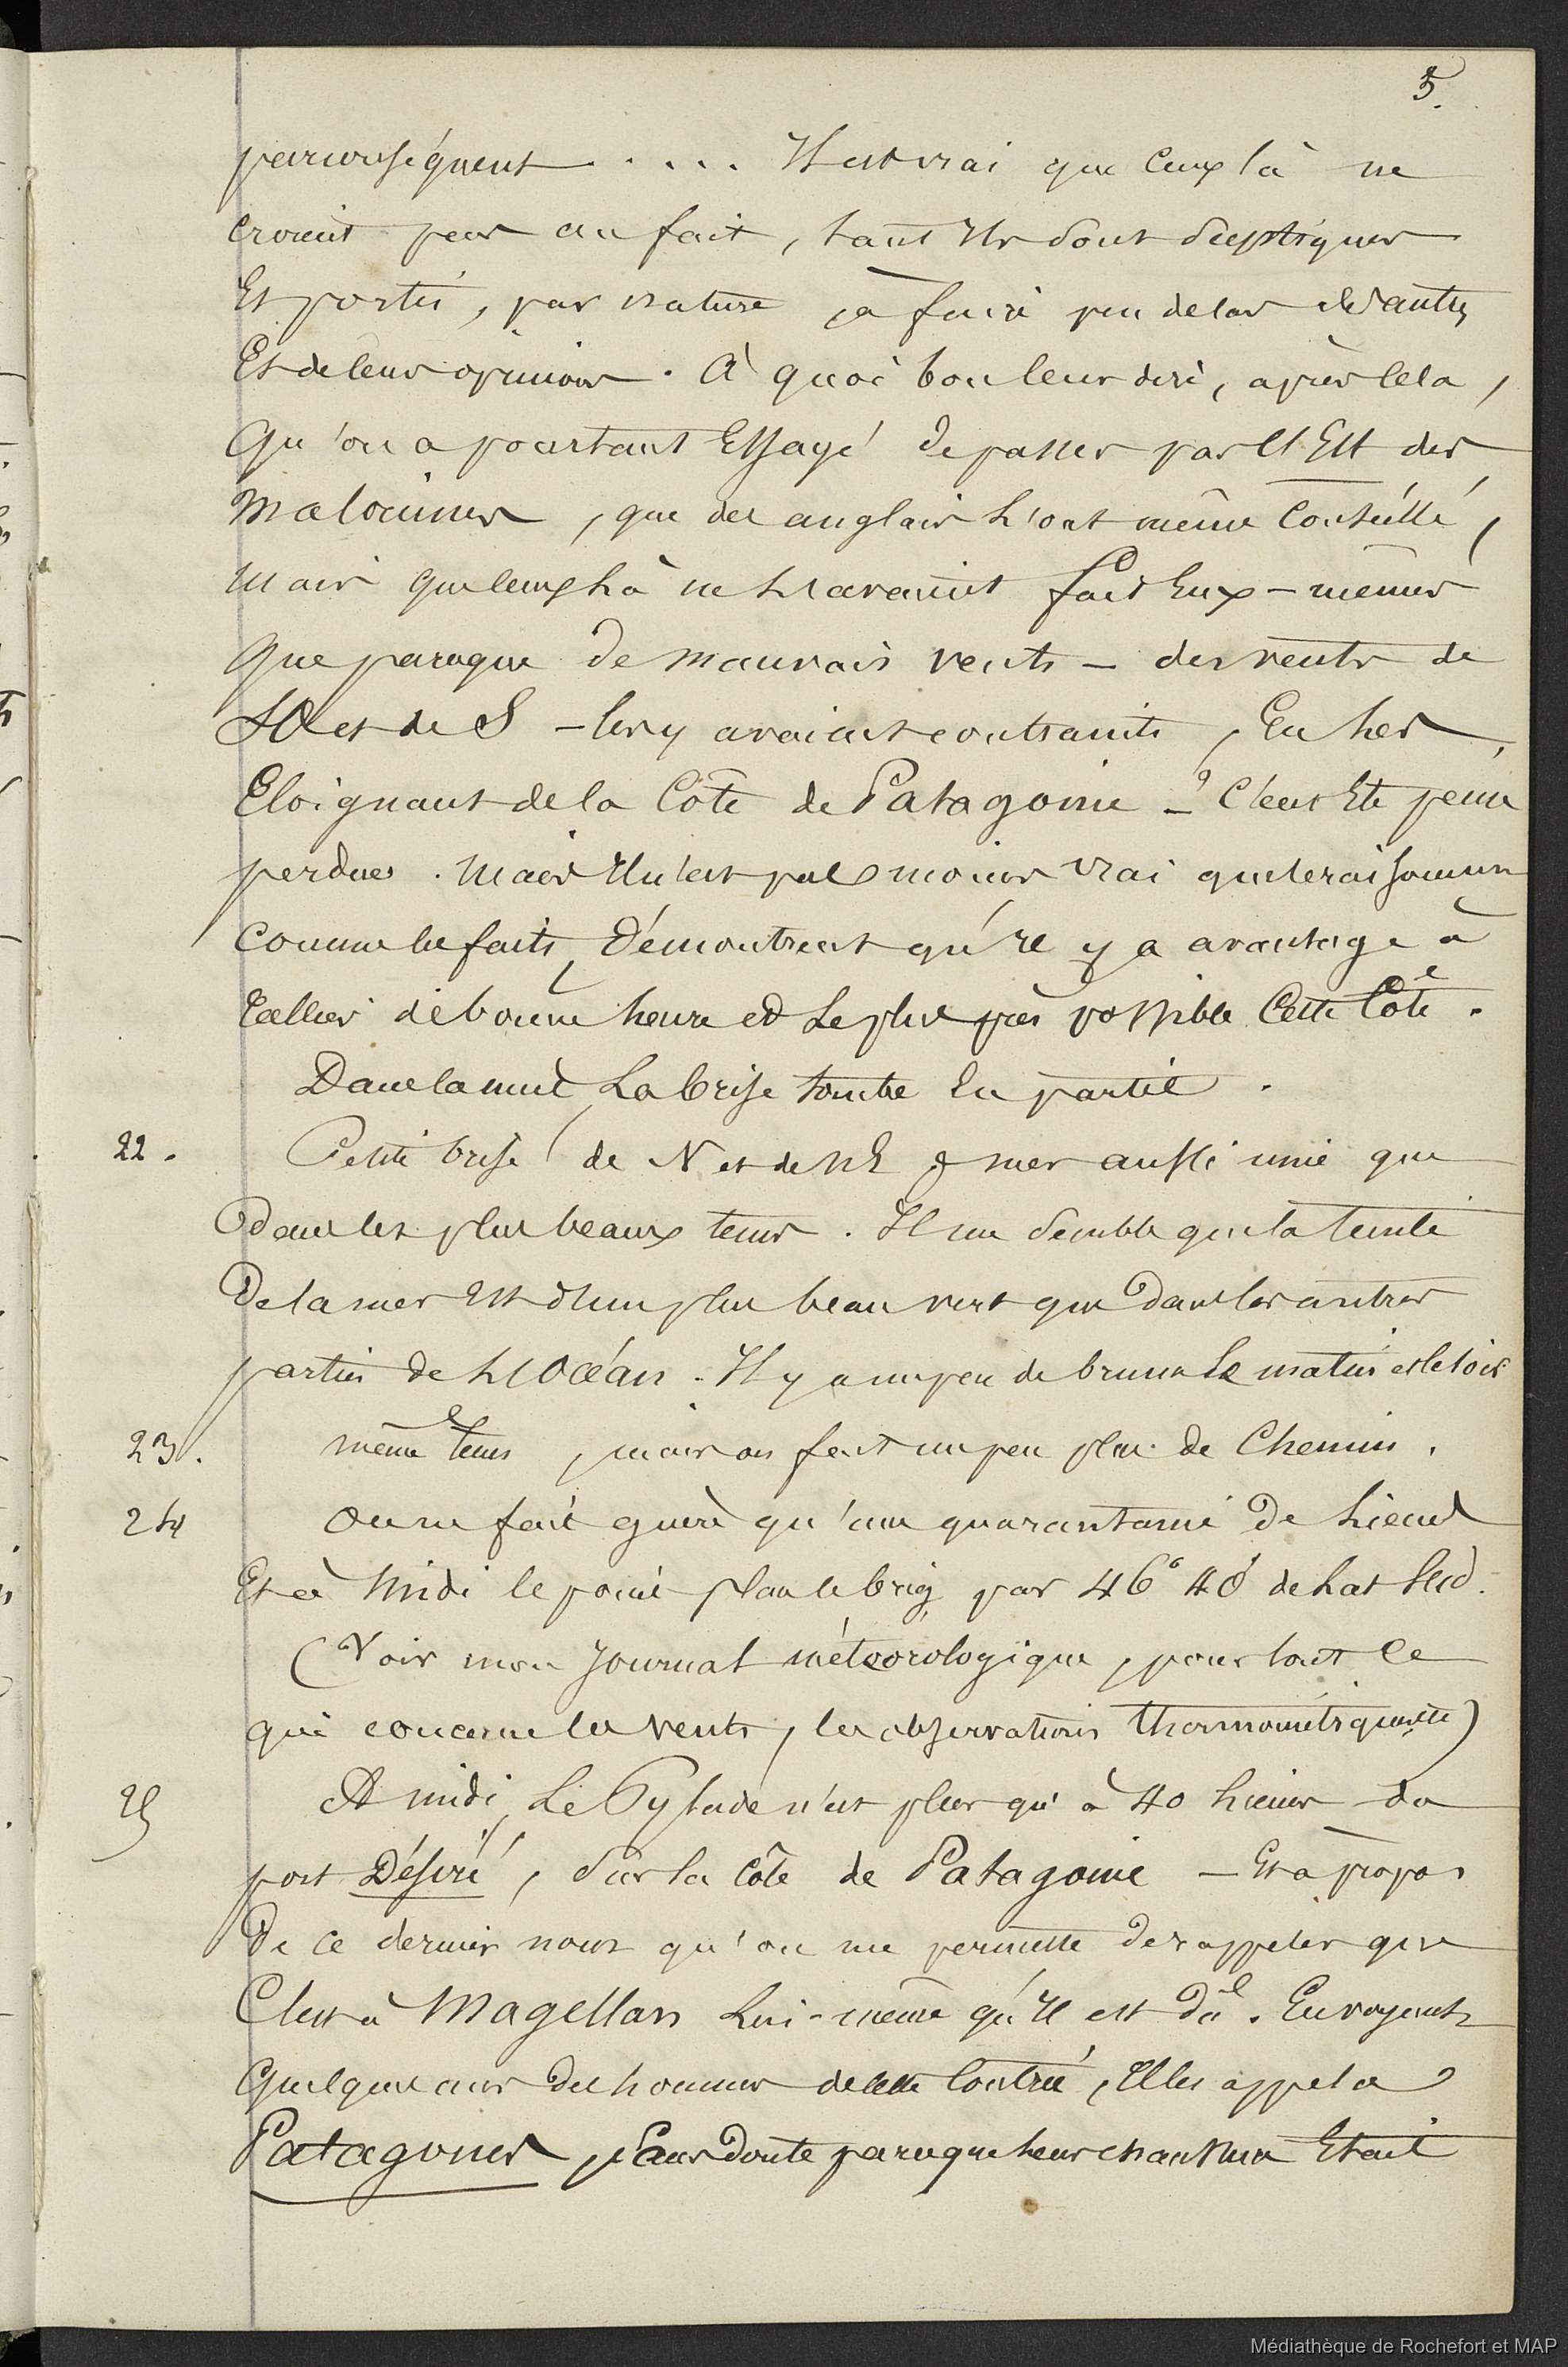 5.
par conséquent . . . . Il est vrai que ceux là ne
croient pas au fait, tant ils sont sceptiques
Et portés, par nature à faire peu de cas des autres
Et de leurs opinions. À quoi bon leur dire, après cela,
Qu'on a pourtant Essayé de passer par l'Est des
Malouines, que des anglais l'ont même Conseillé,
mais que ceux là ne l'avaient fait Eux-mêmes
Que parceque de mauvais vents - des vents de
SO et de S - les y avaient contraints, En les
Eloignant de la Côte de Patagonie - ? C'eut Eté peine
perdue. Mais Il n'est pas moins vrai que le raisonnement
comme les faits, Démontrent qu'Il y a avantage à
rallier de bonne heure et Le plus près possible Cette Côte.
Dans la nuit, La brise tombe En partie.
22. Petite brise de N et de NE & mer aussi unie que
dans les plus beaux tems. Il me semble que la teinte
De la mer Est d'un plus beau vert que Dans les autres
parties de l'Océan. Il y a un peu de brume Le matin et le soir
23. même tems, mais on fait un peu plus de Chemin.
24 On ne fait guère qu'une quarantaine De Lieues
Et à Midi le point place le brig par 46° 40' de Lat Sud.
(Voir mon Journal météorologique, pour tout Ce
qui concerne les vents, les observations thermométriques etc)
25 A midi, Le Pylade n'est plus qu'à 40 Lieues du
port Désiré, sur la Côte de Patagonie - Et à propos
De ce dernier nom qu'on me permette de rappeler que
C'est à Magellan Lui-même qu'Il est dû. En voyant
Quelques uns des hommes de cette Contrée, Il les appela
Patagones, Sans Doute parceque leur chaussure Etait
Médiathèque de Rochefort et MAP